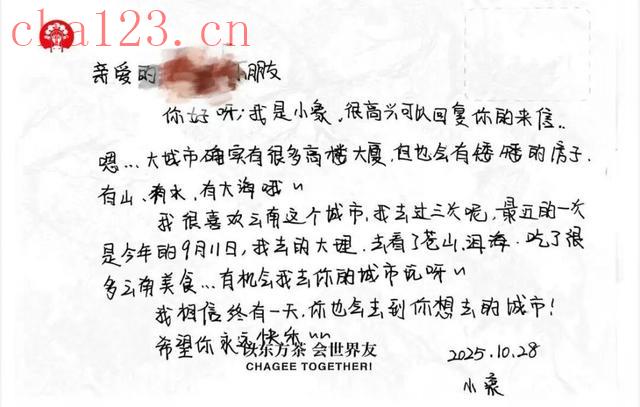 cha123.cn
亲爱的 小朋友
你好呀,我是小象,很高兴可以回复你的来信..
嗯...大城市确实有很多高楼大厦,但也会有矮矮的房子.
有山、有水,有大海哦~
我很喜欢云南这个城市,我去过三次呢,最近的一次
是今年的9月11日,我去的大理.去看了苍山,洱海.吃了很
多云南美食...有机会我去你的城市玩呀~
我相信终有一天,你也会去到你想去的城市!
希望你永远快乐~~
以东方茶 会世界友
CHAGEE TOGETHER!
2025.10.28
小象